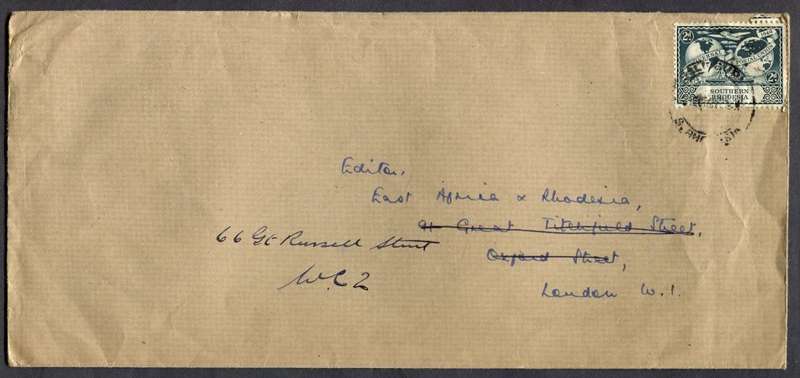 2d
2d
SOUTHERN
RHODESIA
Editor,
East Africa & Rhodesia,
91 Great Titchfield Street,
Oxford Street,
London W.1.
66 Gt Russell Street
W.C.2